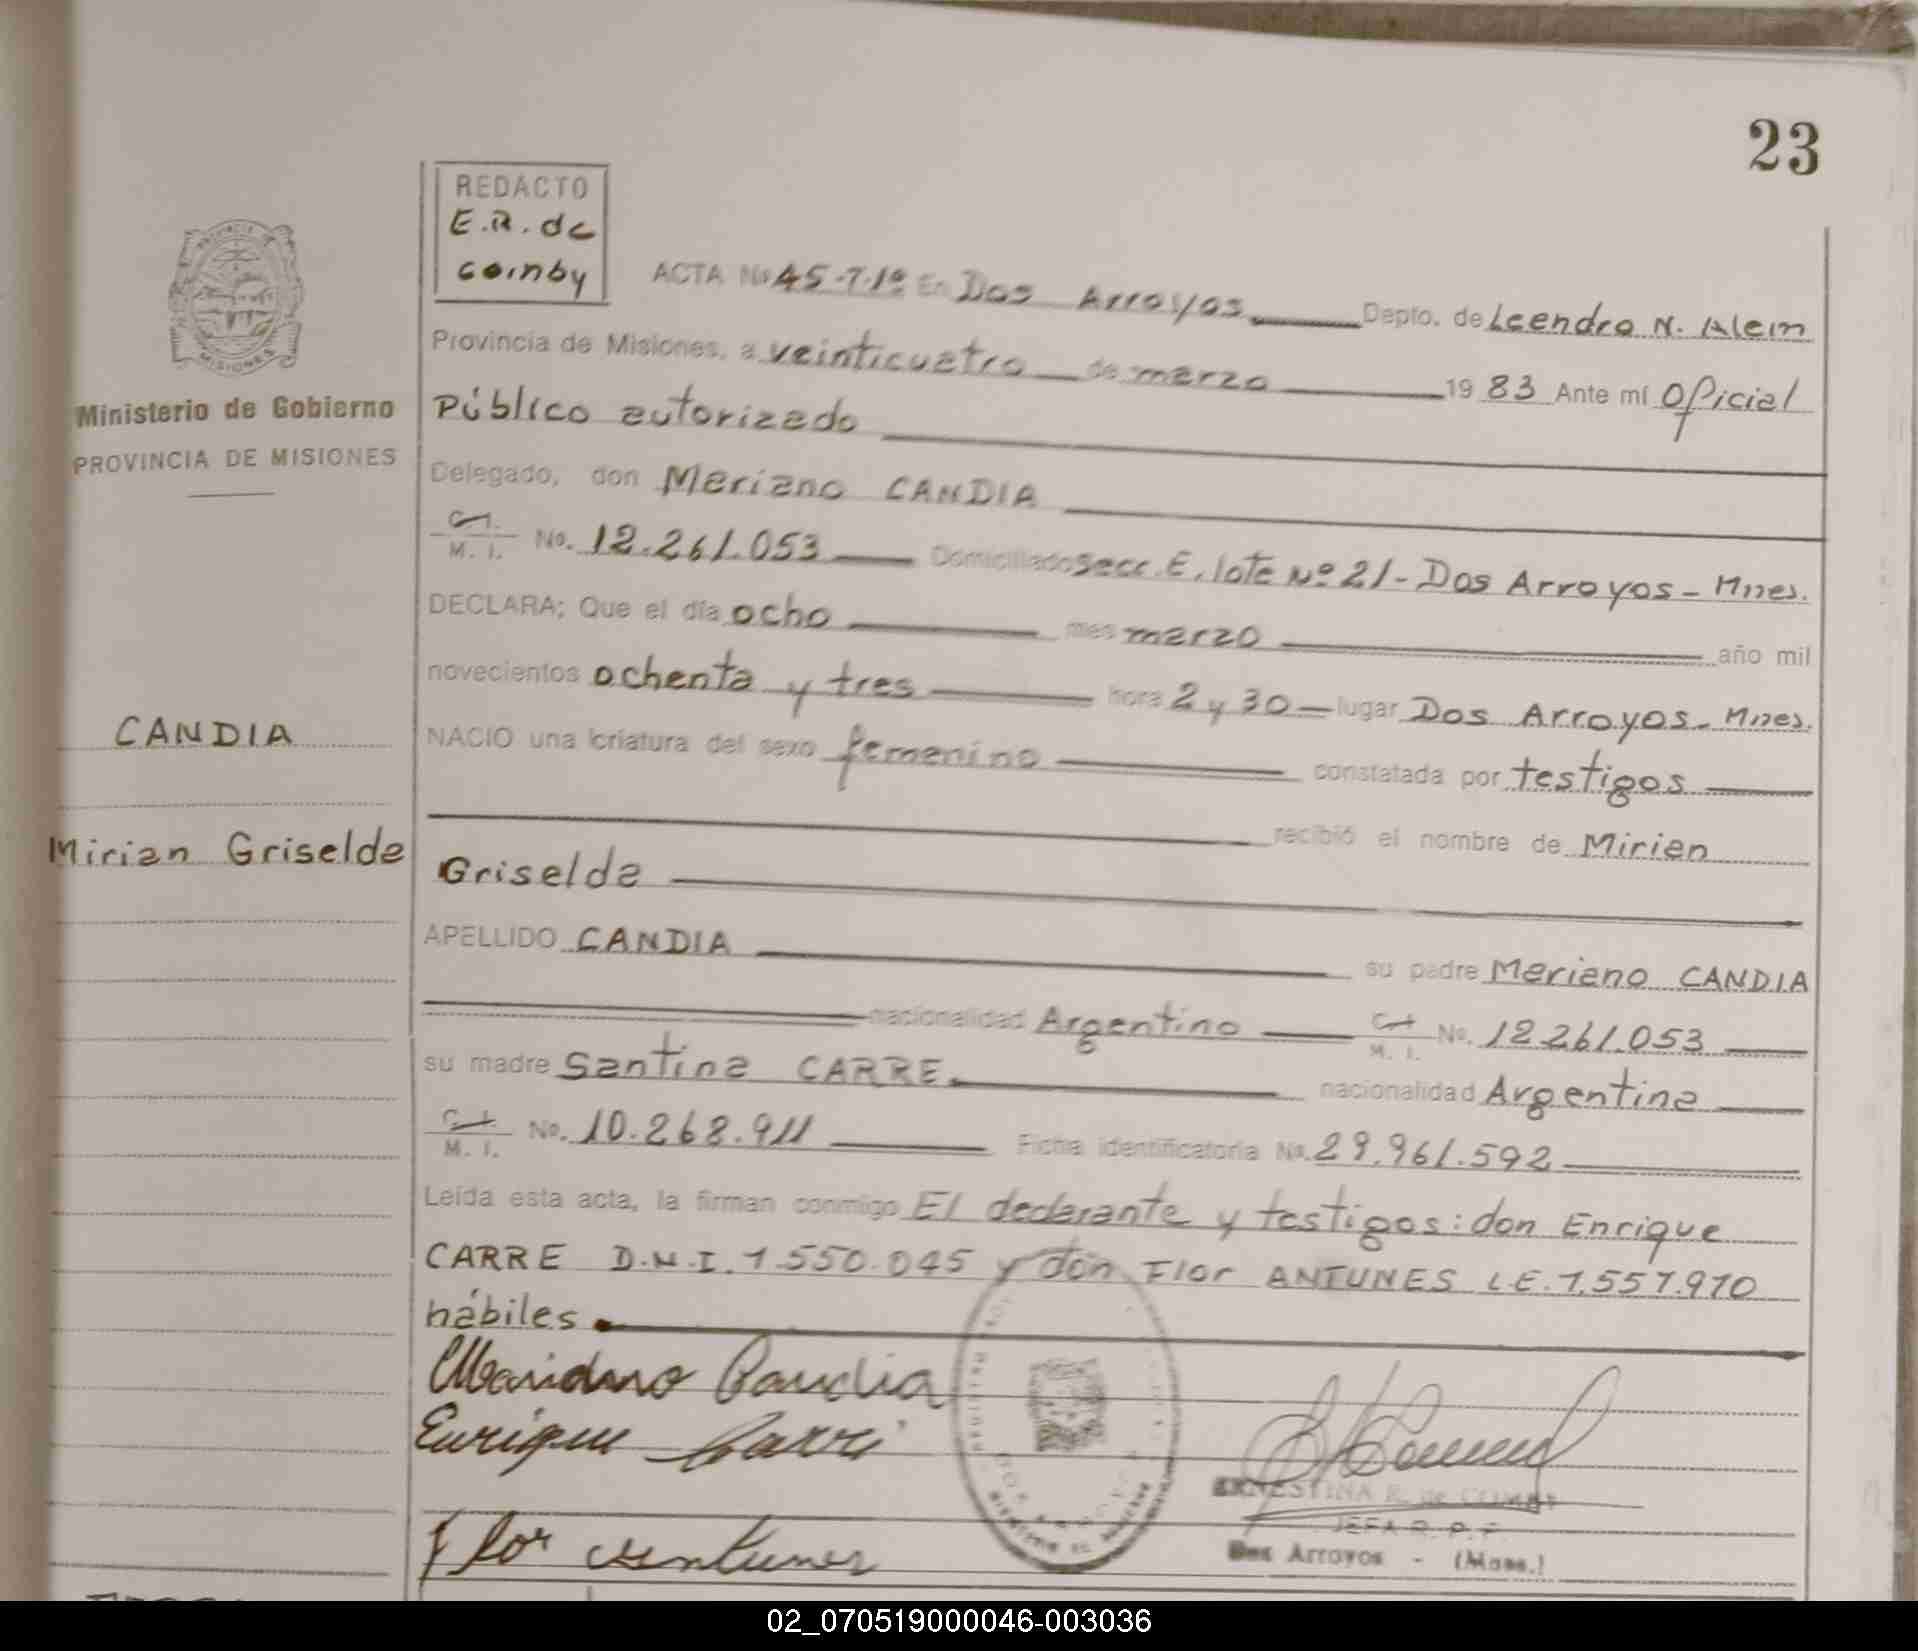 23
REDACTO
E.R. de
Coinby
ACTA No 45-T.1º En Dos Arroyos Depto. de Leandro N. Alem
Provincia de Misiones, a veinticuatro de marzo 1983 Ante mí Oficial
Público autorizado
Ministerio de Gobierno
PROVINCIA DE MISIONES
Delegado, don Mariano CANDIA
C.I. M. I. No. 12.261.053 Domiciliado Secc. E. lote Nº 21 - Dos Arroyos - Mnes.
DECLARA; Que el día ocho mes marzo año mil
novecientos ochenta y tres hora 2 y 30 lugar Dos Arroyos - Mnes.
CANDIA
NACIO una criatura del sexo femenino constatada por testigos
recibió el nombre de Mirian
Mirian Griselda
Griselda
APELLIDO CANDIA su padre Mariano CANDIA
nacionalidad Argentino C.I. M. I. No. 12.261.053
su madre Santina CARRE. nacionalidad Argentina
C.I. M. I. No. 10.268.911 Ficha identificatoria No. 29.961.592
Leída esta acta, la firman conmigo El declarante y testigos: don Enrique
CARRE D.N.I. 1.550.045 y don Flor ANTUNES L.E. 7.557.970
hábiles.
Mariano Candia
Enrique Carre
ERNESTINA R. de
JEFA R. P. F.
Flor Antunes
Dos Arroyos - (Mnes.)
02_070519000046-003036